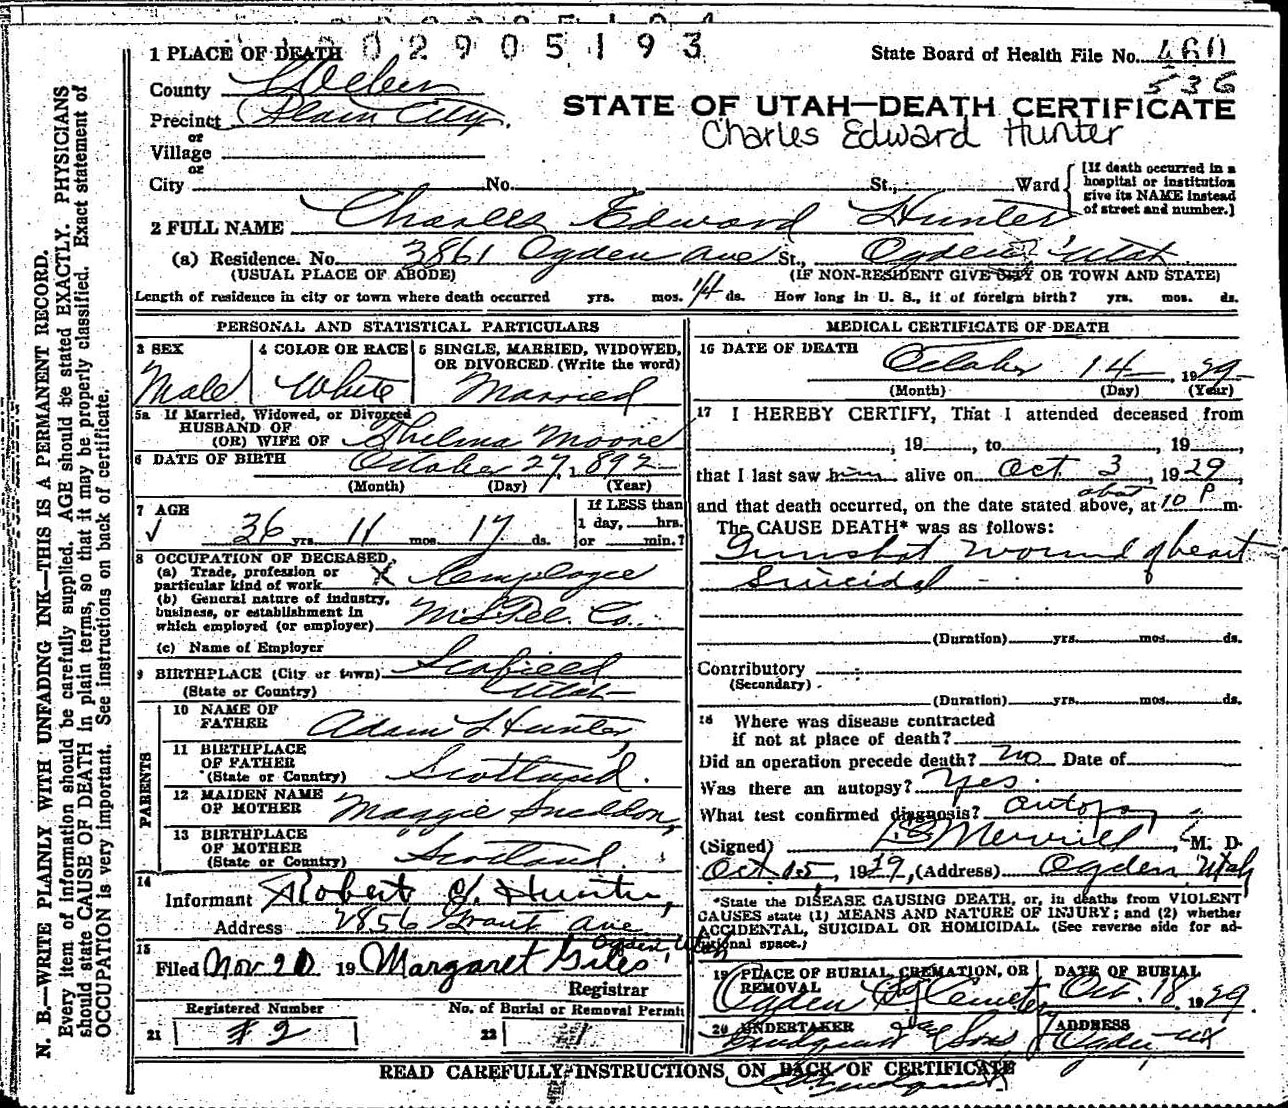 2 0 2 9 0 5 1 9 3
1 PLACE OF DEATH
State Board of Health File No. 460
536
County Weber
Precinct Plain City.
or
Village
or
City No. St., Ward
[If death occurred in a hospital or institution give its NAME instead of street and number.]
STATE OF UTAH—DEATH CERTIFICATE
Charles Edward Hunter
2 FULL NAME Charles Edward Hunter
(a) Residence. No. 3861 Ogden Ave St., Ogden Utah
(USUAL PLACE OF ABODE) (IF NON-RESIDENT GIVE CITY OR TOWN AND STATE)
Length of residence in city or town where death occurred yrs. mos. 14 ds. How long in U. S., if of foreign birth? yrs. mos. ds.
PERSONAL AND STATISTICAL PARTICULARS
3 SEX
Male
4 COLOR OR RACE
White
5 SINGLE, MARRIED, WIDOWED,
OR DIVORCED (Write the word)
Married
5a If Married, Widowed, or Divorced
HUSBAND OF
(OR) WIFE OF Thelma Moore
6 DATE OF BIRTH October 27, 1892
(Month) (Day) (Year)
7 AGE
36 yrs. 11 mos. 17 ds.
If LESS than
1 day, hrs.
or min.?
8 OCCUPATION OF DECEASED
(a) Trade, profession or
particular kind of work X Employee
(b) General nature of industry,
business, or establishment in
which employed (or employer) Tel. Co.
(c) Name of Employer
9 BIRTHPLACE (City or town) Scofield
(State or Country) Utah
PARENTS
10 NAME OF
FATHER Adam L Hunter
11 BIRTHPLACE
OF FATHER
(State or Country) Scotland.
12 MAIDEN NAME
OF MOTHER Maggie Sneddon,
13 BIRTHPLACE
OF MOTHER
(State or Country) Scotland.
14
Informant Robert Hunter,
Address 2856 Grant Ave
Ogden, Utah
15
Filed Nov 20 19 Margaret Giles
Registrar
Registered Number
21 #2
No. of Burial or Removal Permit
22
MEDICAL CERTIFICATE OF DEATH
16 DATE OF DEATH October 14, 1929
(Month) (Day) (Year)
17 I HEREBY CERTIFY, That I attended deceased from
, 19 , to , 19 ,
that I last saw him alive on Oct 3, 1929,
and that death occurred, on the date stated above, at about 10 P m.
The CAUSE DEATH* was as follows:
Gunshot wound of heart
Suicidal -
(Duration) yrs. mos. ds.
Contributory
(Secondary)
(Duration) yrs. mos. ds.
18 Where was disease contracted
if not at place of death?
Did an operation precede death? No Date of
Was there an autopsy? Yes.
What test confirmed diagnosis? Autopsy
(Signed) Merrill, M. D.
Oct. 15, 1929, (Address) Ogden, Utah
*State the DISEASE CAUSING DEATH, or, in deaths from VIOLENT
CAUSES state (1) MEANS AND NATURE OF INJURY; and (2) whether
ACCIDENTAL, SUICIDAL OR HOMICIDAL. (See reverse side for ad-
ditional space.)
19 PLACE OF BURIAL, CREMATION, OR
REMOVAL
Ogden City Cemetery
DATE OF BURIAL
Oct. 18, 1929.
20 UNDERTAKER
Lindquist & Sons
ADDRESS
Ogden,
READ CAREFULLY INSTRUCTIONS ON BACK OF CERTIFICATE
N. B.—WRITE PLAINLY WITH UNFADING INK—THIS IS A PERMANENT RECORD.
Every item of information should be carefully supplied. AGE should be stated EXACTLY. PHYSICIANS
should state CAUSE OF DEATH in plain terms, so that it may be properly classified. Exact statement of
OCCUPATION is very important. See instructions on back of certificate.